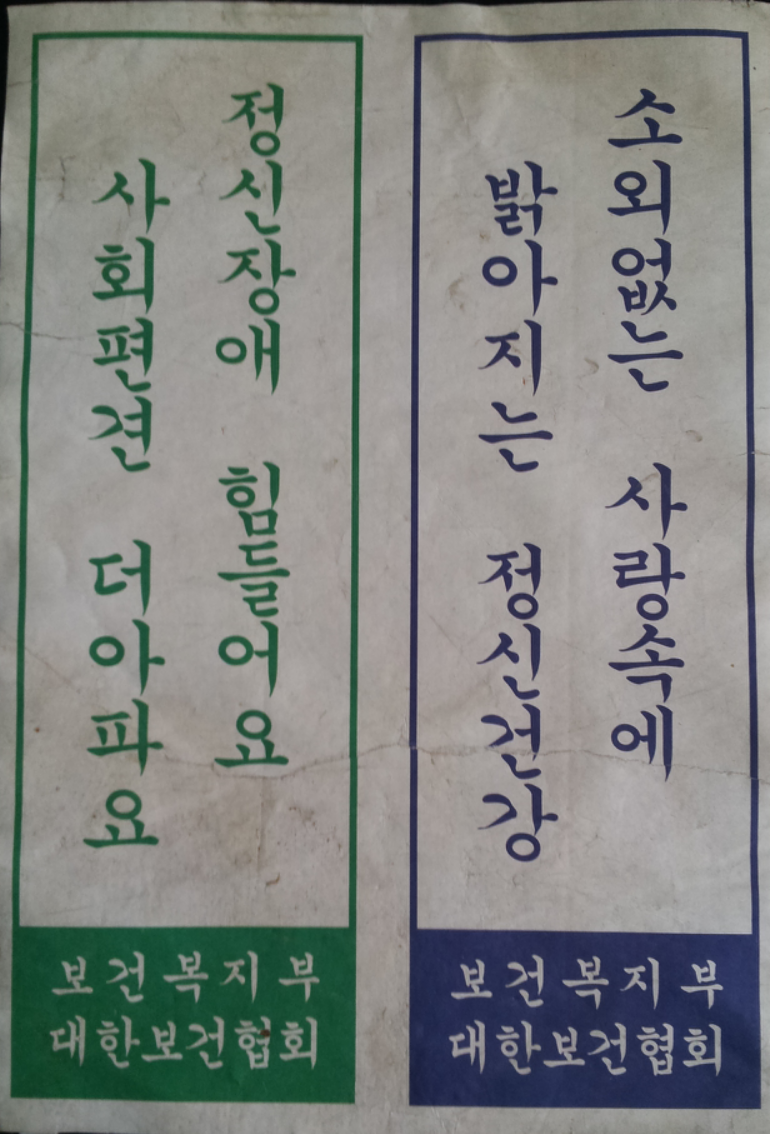 소외없는 사랑속에
밝아지는 정신건강
보건복지부
대한보건협회
정신장애 힘들어요
사회편견 더아파요
보건복지부
대한보건협회